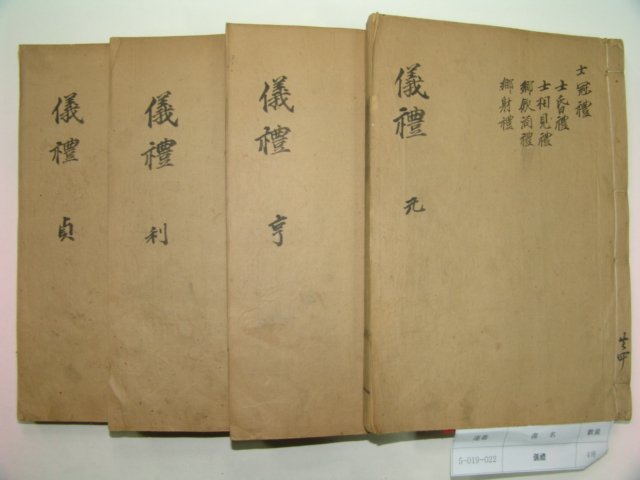 儀禮 元
士冠禮
士昏禮
士相見禮
鄕飮酒禮
鄕射禮
共四
儀禮 亨
儀禮 利
儀禮 貞
番號 書名 數量
5-019-022 儀禮 4冊